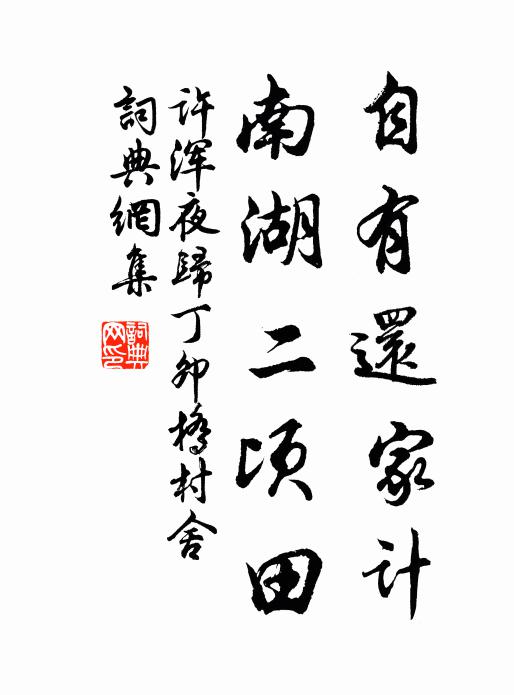 自有還家计
南湖二顷田
许浑夜歸丁卯橋村舍
詞典網集
詞典网印